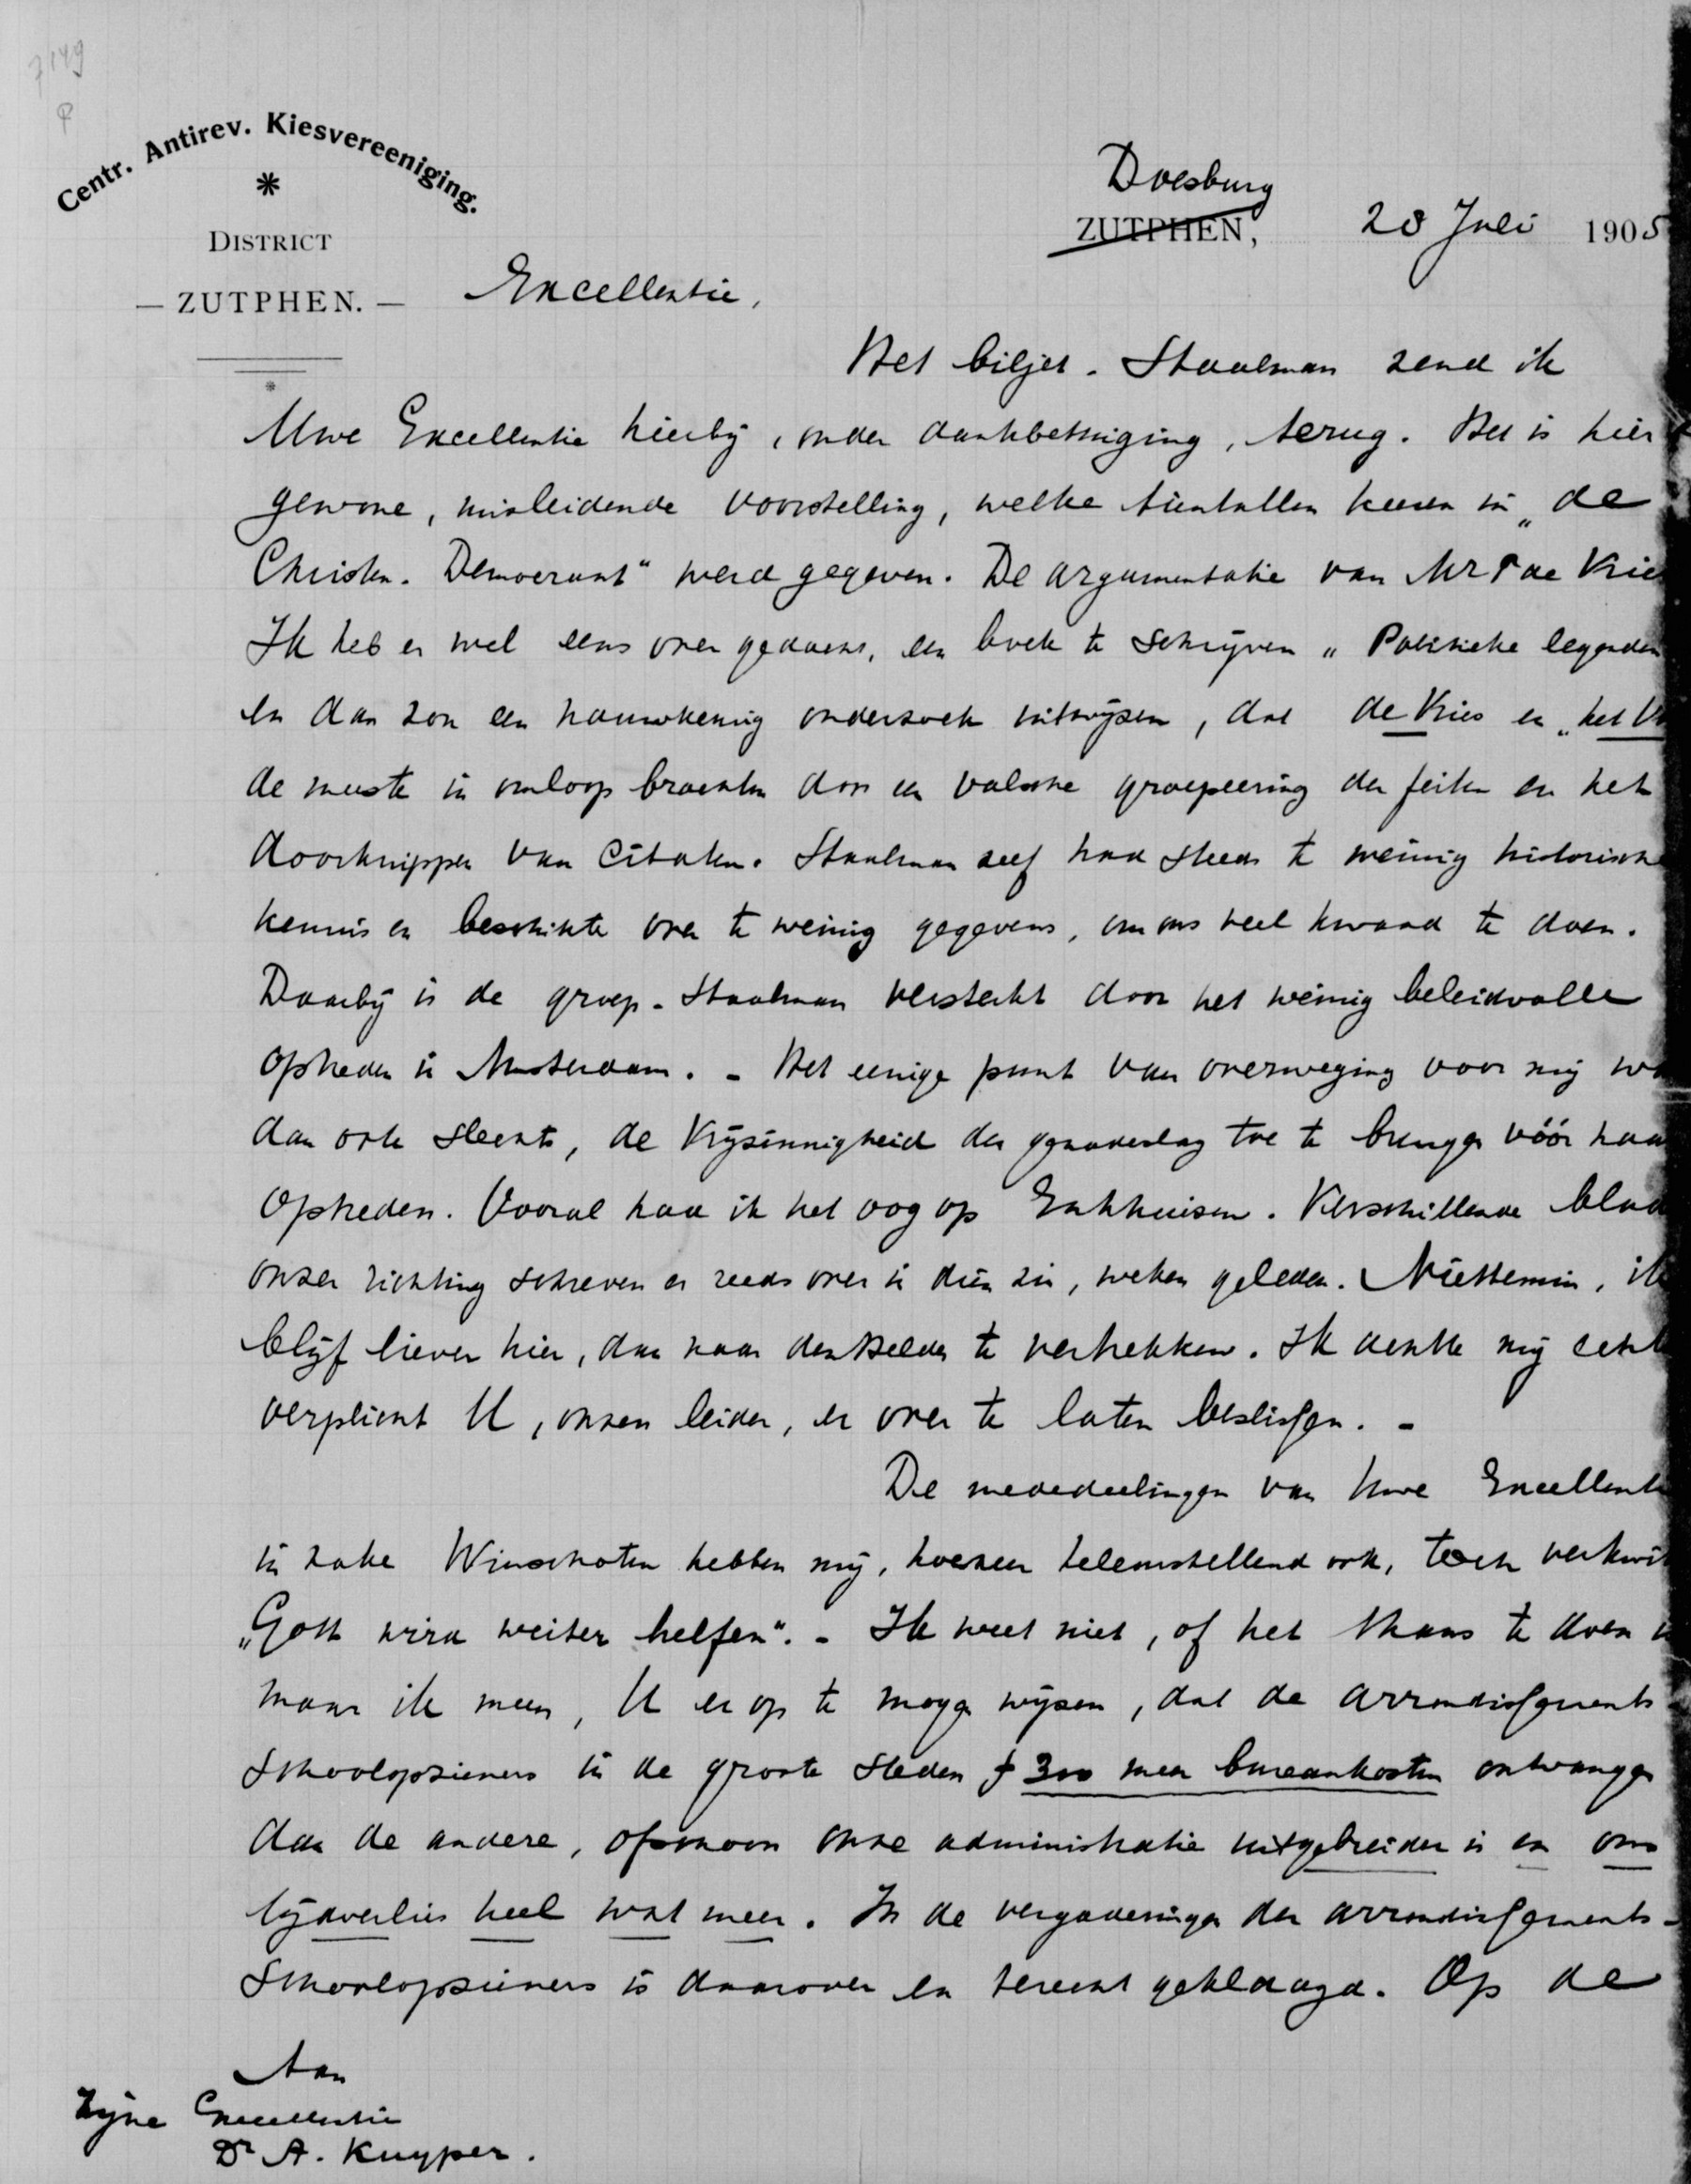 7149
Centr. Antirev. Kiesvereeniging.
DISTRICT
— ZUTPHEN. —
Doesburg
ZUTPHEN, 20 Juli 1905
Excellentie,
Het biljet-Staalman zend ik
Uwe Excellentie hierbij, onder dankbetuiging, terug. Het is hier
gewone, misleidende voorstelling, welke tientallen keeren in „de
Christen-Democraat" werd gegeven. De argumentatie van Mr P de Vries
Ik heb er wel eens over gedacht, een boek te schrijven „Politieke legenden
en dan zou een nauwkeurig onderzoek uitwijzen, dat de Vries en „het
de meeste in omloop brachten door een valsche groepeering der feiten en het
doorknippen van citaten. Staalman zelf had steeds te weinig historische
kennis en beschikte over te weinig gegevens, om ons veel kwaad te doen.
Daarbij is de groep-Staalman versterkt door het weinig beleidvolle
optreden in Amsterdam. - Het eenige punt van overweging voor mij
dan ook slechts, de Vrijzinnigheid den genadeslag toe te brengen vóór haar
optreden. Vooral had ik het oog op Enkhuizen. Verschillende
onzer richting schreven er reeds over in dien zin, weken geleden. Niettemin, ik
blijf liever hier, dan naar den Helder te vertrekken. Ik denkte mij
verplicht U, onzen leider, er over te laten beslissen. -
De mededeelingen van Uwe Excellentie
in zake Winschoten hebben mij, hoezeer teleurstellend ook, toch
„Gott wird weiter helfen". - Ik weet niet, of het thans te doen
maar ik meen, U er op te mogen wijzen, dat de arrondissements-
schoolopzieners in de groote steden f 300 meer bureaukosten ontvangen
dan de andere, ofschoon onze administratie uitgebreider is en ons
tijdverlies heel wat meer. In de vergaderingen der arrondissements-
schoolopzieners is daarover en terecht geklaagd. Op de
Aan
Zijne Excellentie
Dr A. Kuyper.